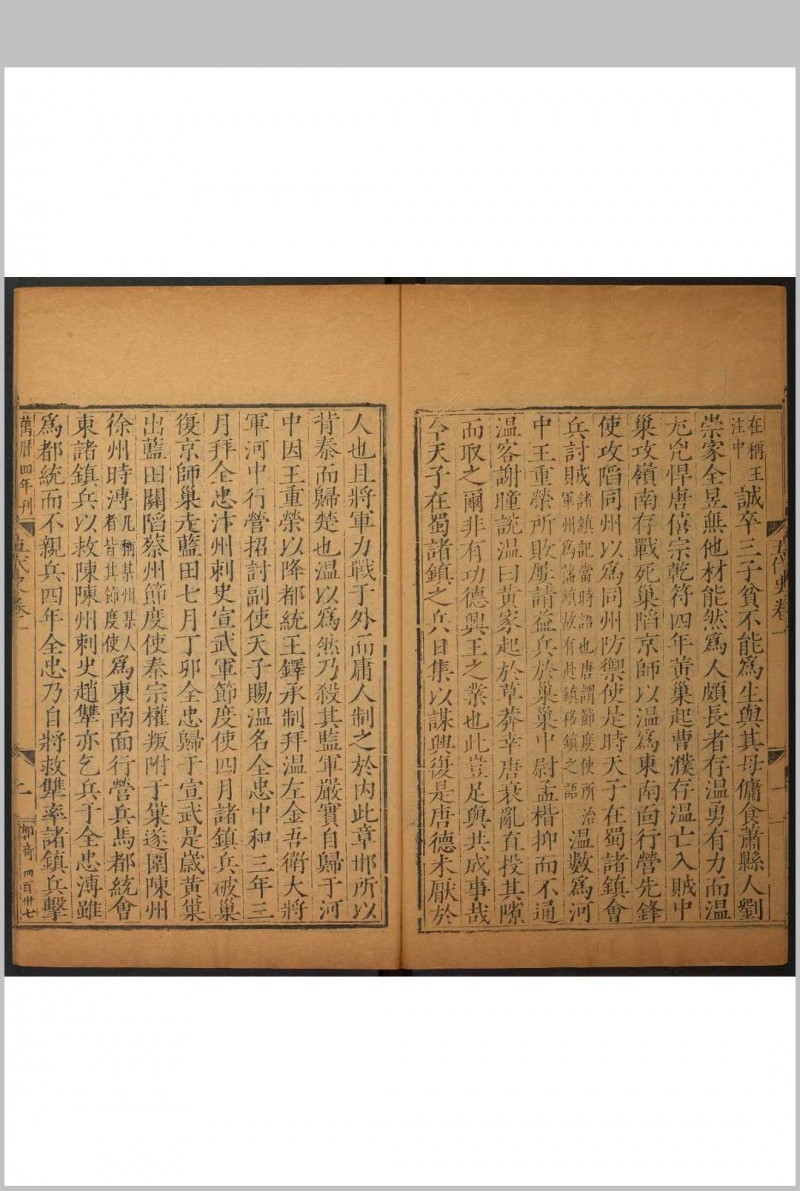 在稱王
注中
誠卒三子貧不能爲生與其母傭食蕭縣人劉
崇家全昱無他材能然爲人頗長者存溫勇有力而溫
尤兇悍唐僖宗乾符四年黃巢起曹濮存溫亡入賊中
巢攻嶺南存戰死巢陷京師以溫爲東南面行營先鋒
使攻陷同州以爲同州防禦使是時天子在蜀諸鎮會
兵討賊
諸鎮記當時語也唐謂節度使所治
軍州爲藩鎮故有赴鎮移鎮之語
溫數爲河
中王重榮所敗屢請益兵於巢巢中尉孟楷抑而不通
溫客謝瞳説溫曰黃家起於草莽幸唐衰亂直投其隙
而取之爾非有功德興王之業也此豈足與共成事哉
今天子在蜀諸鎮之兵日集以謀興復是唐德未厭於
五代史卷一
一
人也且將軍力戰于外而庸人制之於內此章邯所以
背秦而歸楚也溫以爲然乃殺其監軍嚴實自歸于河
中因王重榮以降都統王鐸承制拜溫左金吾衛大將
軍河中行營招討副使天子賜溫名全忠中和三年三
月拜全忠汴州刺史宣武軍節度使四月諸鎮兵破巢
復京師巢走藍田七月丁卯全忠歸于宣武是歲黃巢
出藍田關陷蔡州節度使秦宗權叛附于巢遂圍陳州
徐州時溥
凡稱某州某人
者皆其節度使
爲東南面行營兵馬都統會
東諸鎮兵以救陳陳州刺史趙犨亦乞兵于全忠溥雖
爲都統而不親兵四年全忠乃自將救犨率諸鎮兵擊
萬曆四年刊
五代史卷一
二
四百卅七